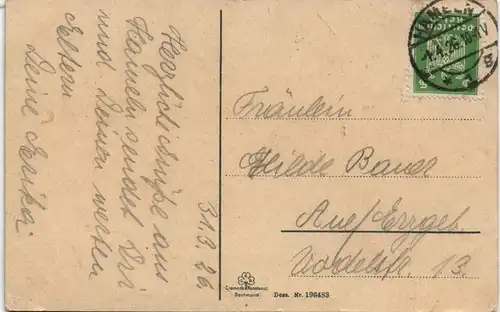 Herzliche Grüße aus
Hameln sendet Dir
und Deinen werten
Eltern
Deine Erika.
31.3.26
Fräulein
Hilde Bauer
Aue/Erzgeb.
13.
HAMELN
1.4.26
b
Dess. Nr. 196483